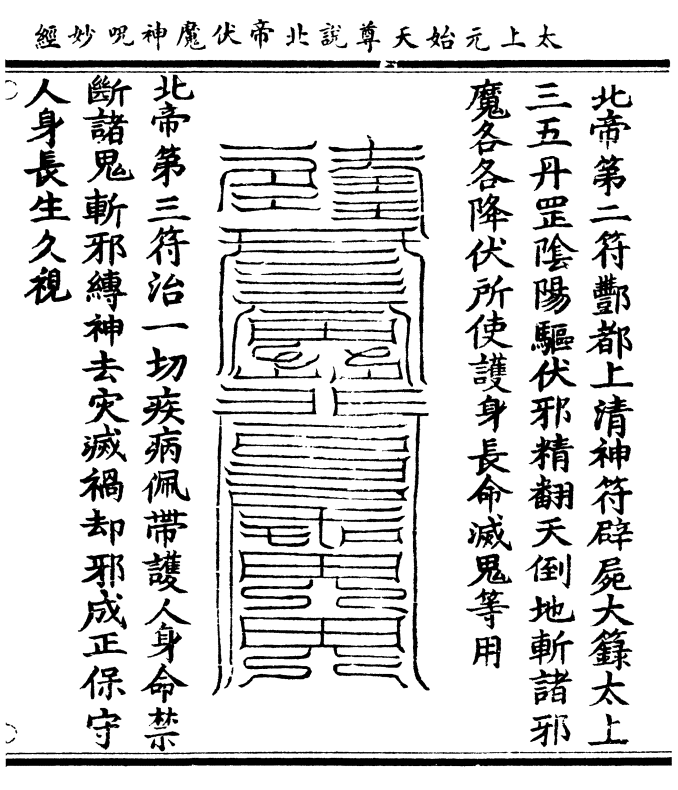 太上元始天尊說北帝伏魔神呪妙經
北帝第二符酆都上清神符辟屍大籙太上
三五丹罡陰陽驅伏邪精翻天倒地斬諸邪
魔各各降伏所使護身長命滅鬼等用
北帝第三符治一切疾病佩帶護人身命禁
斷諸鬼斬邪縛神去灾滅禍却邪成正保守
人身長生久視